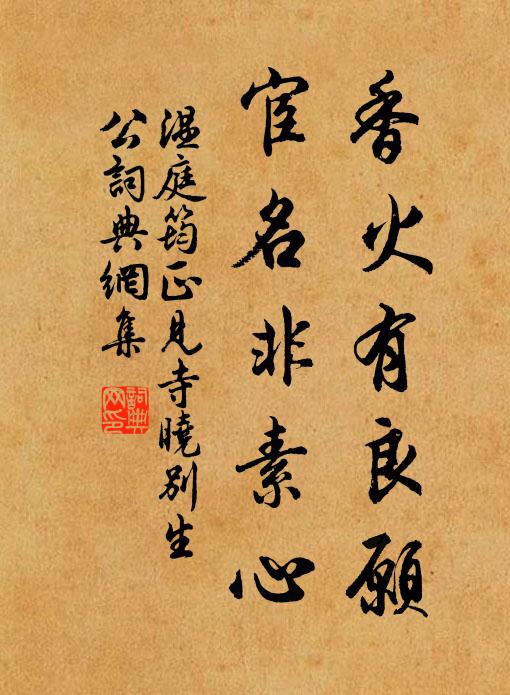 香火有良願
宦名非素心
溫庭筠正見寺曉別生
公詞典網集
詞典
网印